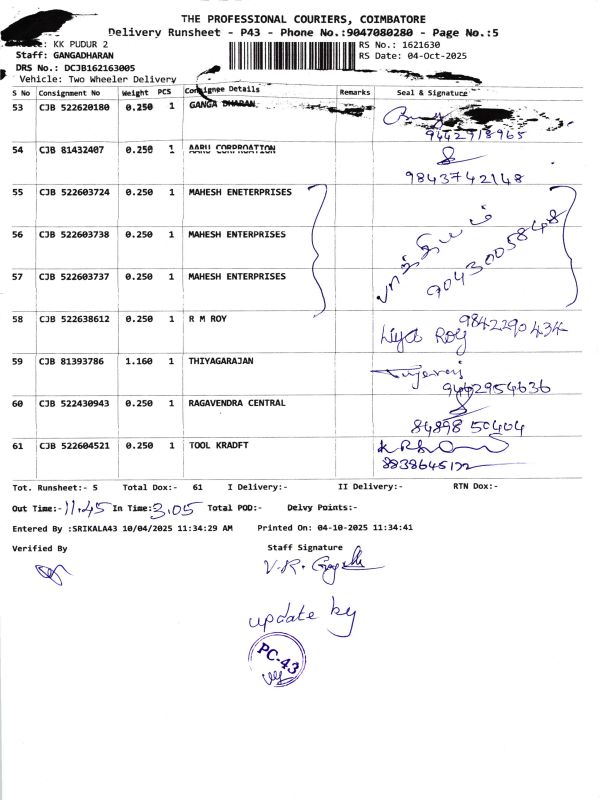 THE PROFESSIONAL COURIERS, COIMBATORE
Delivery Runsheet - P43 - Phone No.:9047080280 - Page No.:5
KK PUDUR 2
RS No.: 1621630
Staff: GANGADHARAN
RS Date: 04-Oct-2025
DRS No.: DCJB162163005
Vehicle: Two Wheeler Delivery
S No Consignment No Weight PCS Consignee Details Remarks Seal & Signature
53 CJB 522620180 0.250 1 GANGA DHARAN
9442918965
54 CJB 81432407 0.250 1 AARU CORPROATION
9843742148
55 CJB 522603724 0.250 1 MAHESH ENETERPRISES
56 CJB 522603738 0.250 1 MAHESH ENTERPRISES
9043005848
57 CJB 522603737 0.250 1 MAHESH ENTERPRISES
58 CJB 522638612 0.250 1 R M ROY
Liya Roy 9842290434
59 CJB 81393786 1.160 1 THIYAGARAJAN
9442954636
60 CJB 522430943 0.250 1 RAGAVENDRA CENTRAL
84898 50404
61 CJB 522604521 0.250 1 TOOL KRADFT
Tot. Runsheet:- 5 Total Dox:- 61 I Delivery:- II Delivery:- RTN Dox:-
Out Time:- 11.45 In Time: 3.05 Total POD:- Delvy Points:-
Entered By :SRIKALA43 10/04/2025 11:34:29 AM Printed On: 04-10-2025 11:34:41
Verified By Staff Signature
update by
PC-43